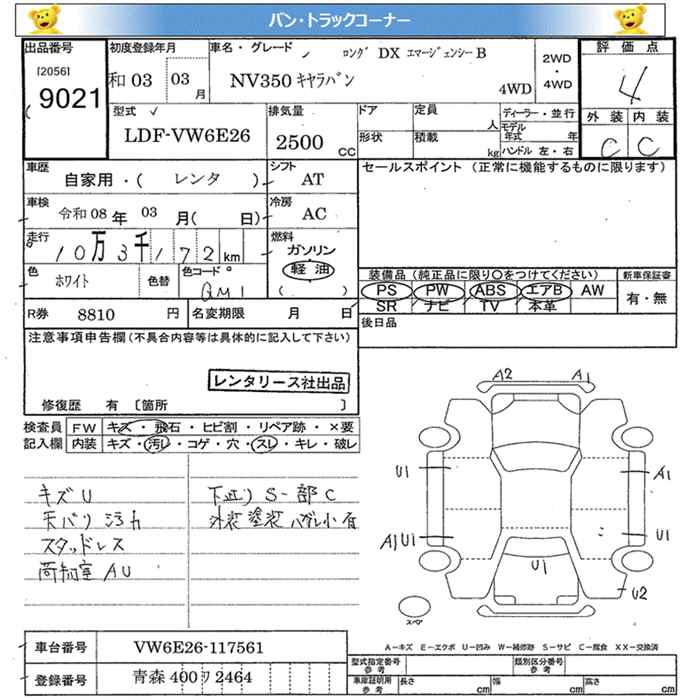 バン・トラックコーナー
出品番号
[2056]
9021
初度登録年月
和03 03月
車名・グレード
ロング DX エマージェンシー B
NV350 キャラバン
4WD
2WD
・
4WD
評価点
4
外装 内装
C C
型式
LDF-VW6E26
排気量
2500 CC
ドア
定員 人
形状
積載 kg
ディーラー・並行
モデル年式 年
ハンドル 左・右
車歴
自家用・( レンタ )
シフト
AT
セールスポイント (正常に機能するものに限ります)
車検
令和08年 03月( 日)
冷房
AC
走行
10万3千172km
燃料
ガソリン
軽油
( )
色
ホワイト
色替
色コード
QM1
装備品 (純正品に限り○をつけてください)
PS PW ABS エアB AW
SR ナビ TV 本革
新車保証書
有・無
R券 8810 円
名変期限 月 日
後日品
注意事項申告欄 (不具合内容等は具体的に記入して下さい)
レンタリース社出品
修復歴 有 [箇所 ]
検査員 FW キズ・飛石・ヒビ割・リペア跡・×要
記入欄 内装 キズ・汚れ・コゲ・穴・スレ・キレ・破レ
キズU
天バリ汚れ
スタッドレス
荷物室AU
下廻りS一部C
外装塗装ハガレ小有
A2 A1
U1 A1
A1U1 U1
U1
U2
スペア
A-キズ E-エクボ U-凹み W-補修跡 S-サビ C-腐食 XX-交換済
車台番号 VW6E26-117561
登録番号 青森400ワ2464
型式指定番号 参考
類別区分番号 参考
車庫証明用 参考
長さ cm
幅 cm
高さ cm